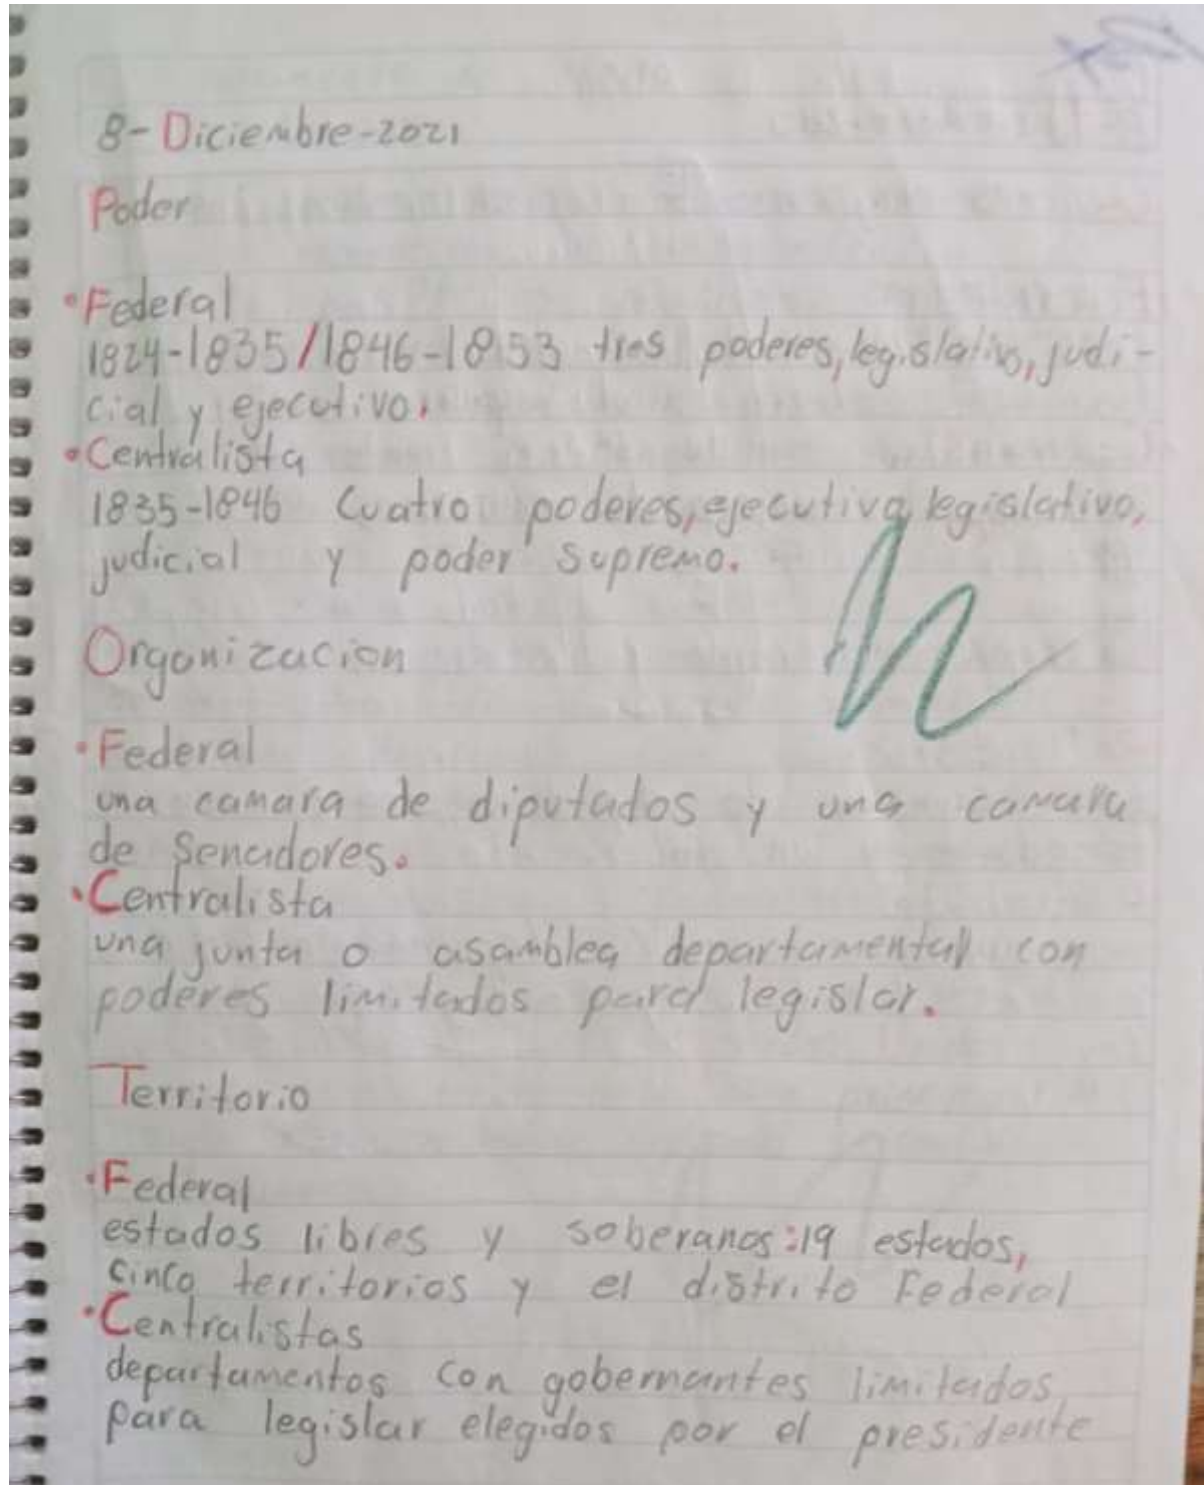 8-Diciembre-2021
Poder
•Federal
1824-1835/1846-1853 tres poderes, legislativo, judi-
cial y ejecutivo.
•Centralista
1835-1846 Cuatro poderes, ejecutivo, legislativo,
judicial y poder supremo.
Organizacion
•Federal
una camara de diputados y una camara
de Senadores.
•Centralista
una junta o asamblea departamental con
poderes limitados para legislar.
Territorio
•Federal
estados libres y soberanos:19 estados,
cinco territorios y el distrito Federal
•Centralistas
departamentos con gobernantes limitados
para legislar elegidos por el presidente